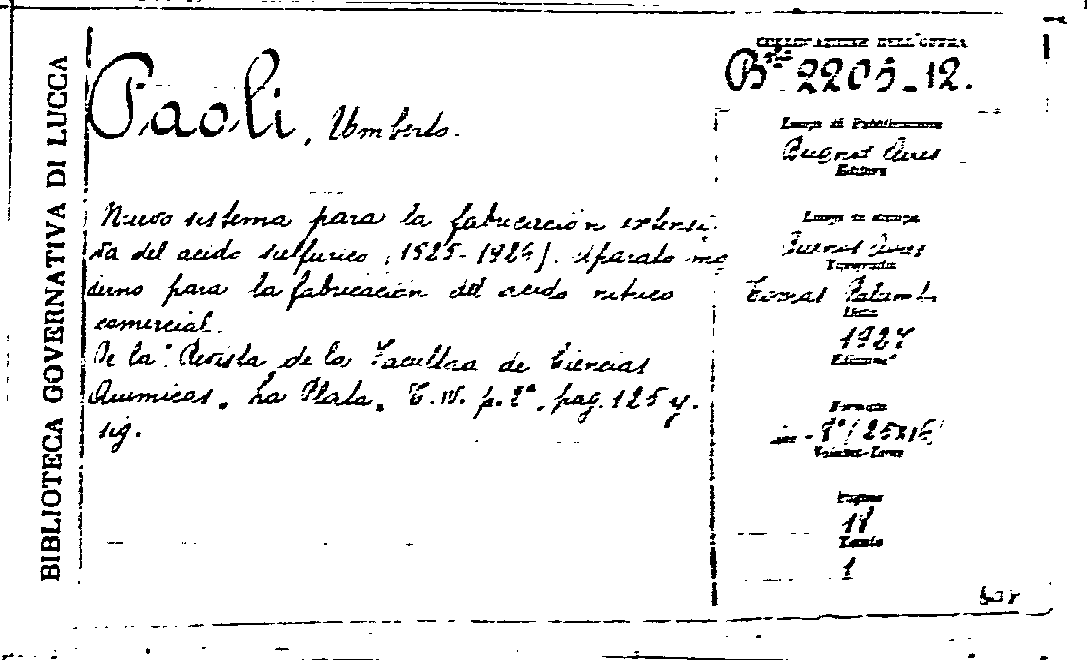 BIBLIOTECA GOVERNATIVA DI LUCCA
Paoli, Umberto.
Nuevo sistema para la fabricación extensi-
va del acido sulfurico (1925-1926). Aparato mo
derno para la fabricación del acido nitrico
comercial.
De la "Revista de la Facultad de Ciencias
Quimicas. La Plata. T. IV. p. 2ª. pag. 125 y.
sig.
COLLOCAZIONE DELL'OPERA
Bta 2205-12.
Luogo di Pubblicazione
Buenos Aires
Editore
Luogo di stampa
Buenos Aires
Tipografia
Tomas Palumbo
Data
1927
Edizione
Formato
in-8º (25x16)
Volumi-Tomi
Pagine
18
Tavole
1